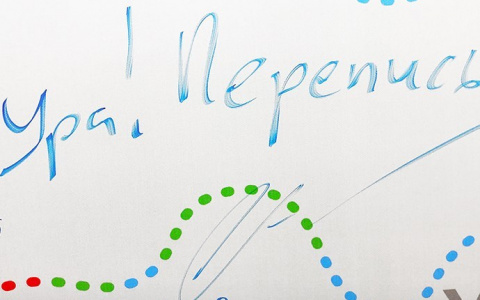 Ура! Перепись